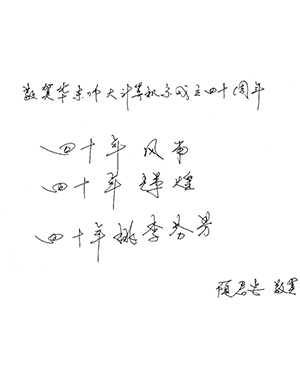 敬贺华东师大计算机系成立四十周年
四十年风雨
四十年辉煌
四十年桃李芬芳
顾君忠 敬贺